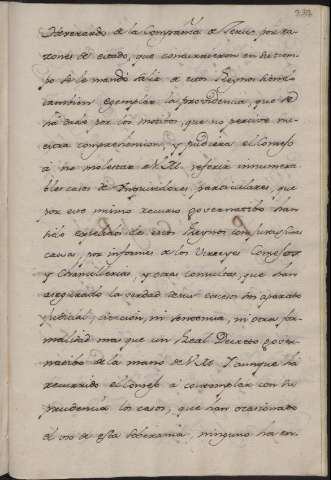 Reverendo de la Compañia de Jesus, por ra
zones de estado, que concurrieron en su tiem
po se le mandò salir de estos Reynos siendo
tambien exemplar la providencia, que se
ha dado por los motibos, que no percive nu
estra comprehension, y pudiera el Consejo
à no molestar a V.M. referir innumera
bles casos de Inquisidores, particulares, que
por este mismo recurso governatibo han
sido expelidos de estos Reynos con justas
causas, por informes de los Virreyes Consejos
y Chancillerias, y otras consultas, que han
asegurado la verdad de sus excesos sin aparato
judicial, citacion, ni sentencia, ni otra for
malidad mas que un Real Decreto gover
natibo de la mano de V.M. Y aunque ha
recurrido el Consejo à contemplar con su
prudencia los casos, que han ocasionado
el uso de esta soberania, ninguno ha en